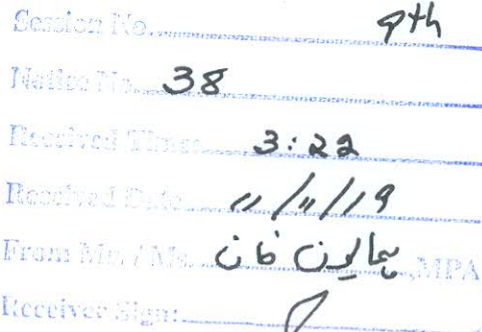 Session No. 9th
Notice No. 38
Received Time: 3:22
Received Date 11/11/19
From Mr. / Ms. ہمایون خان ,MPA
Receiver Sign: